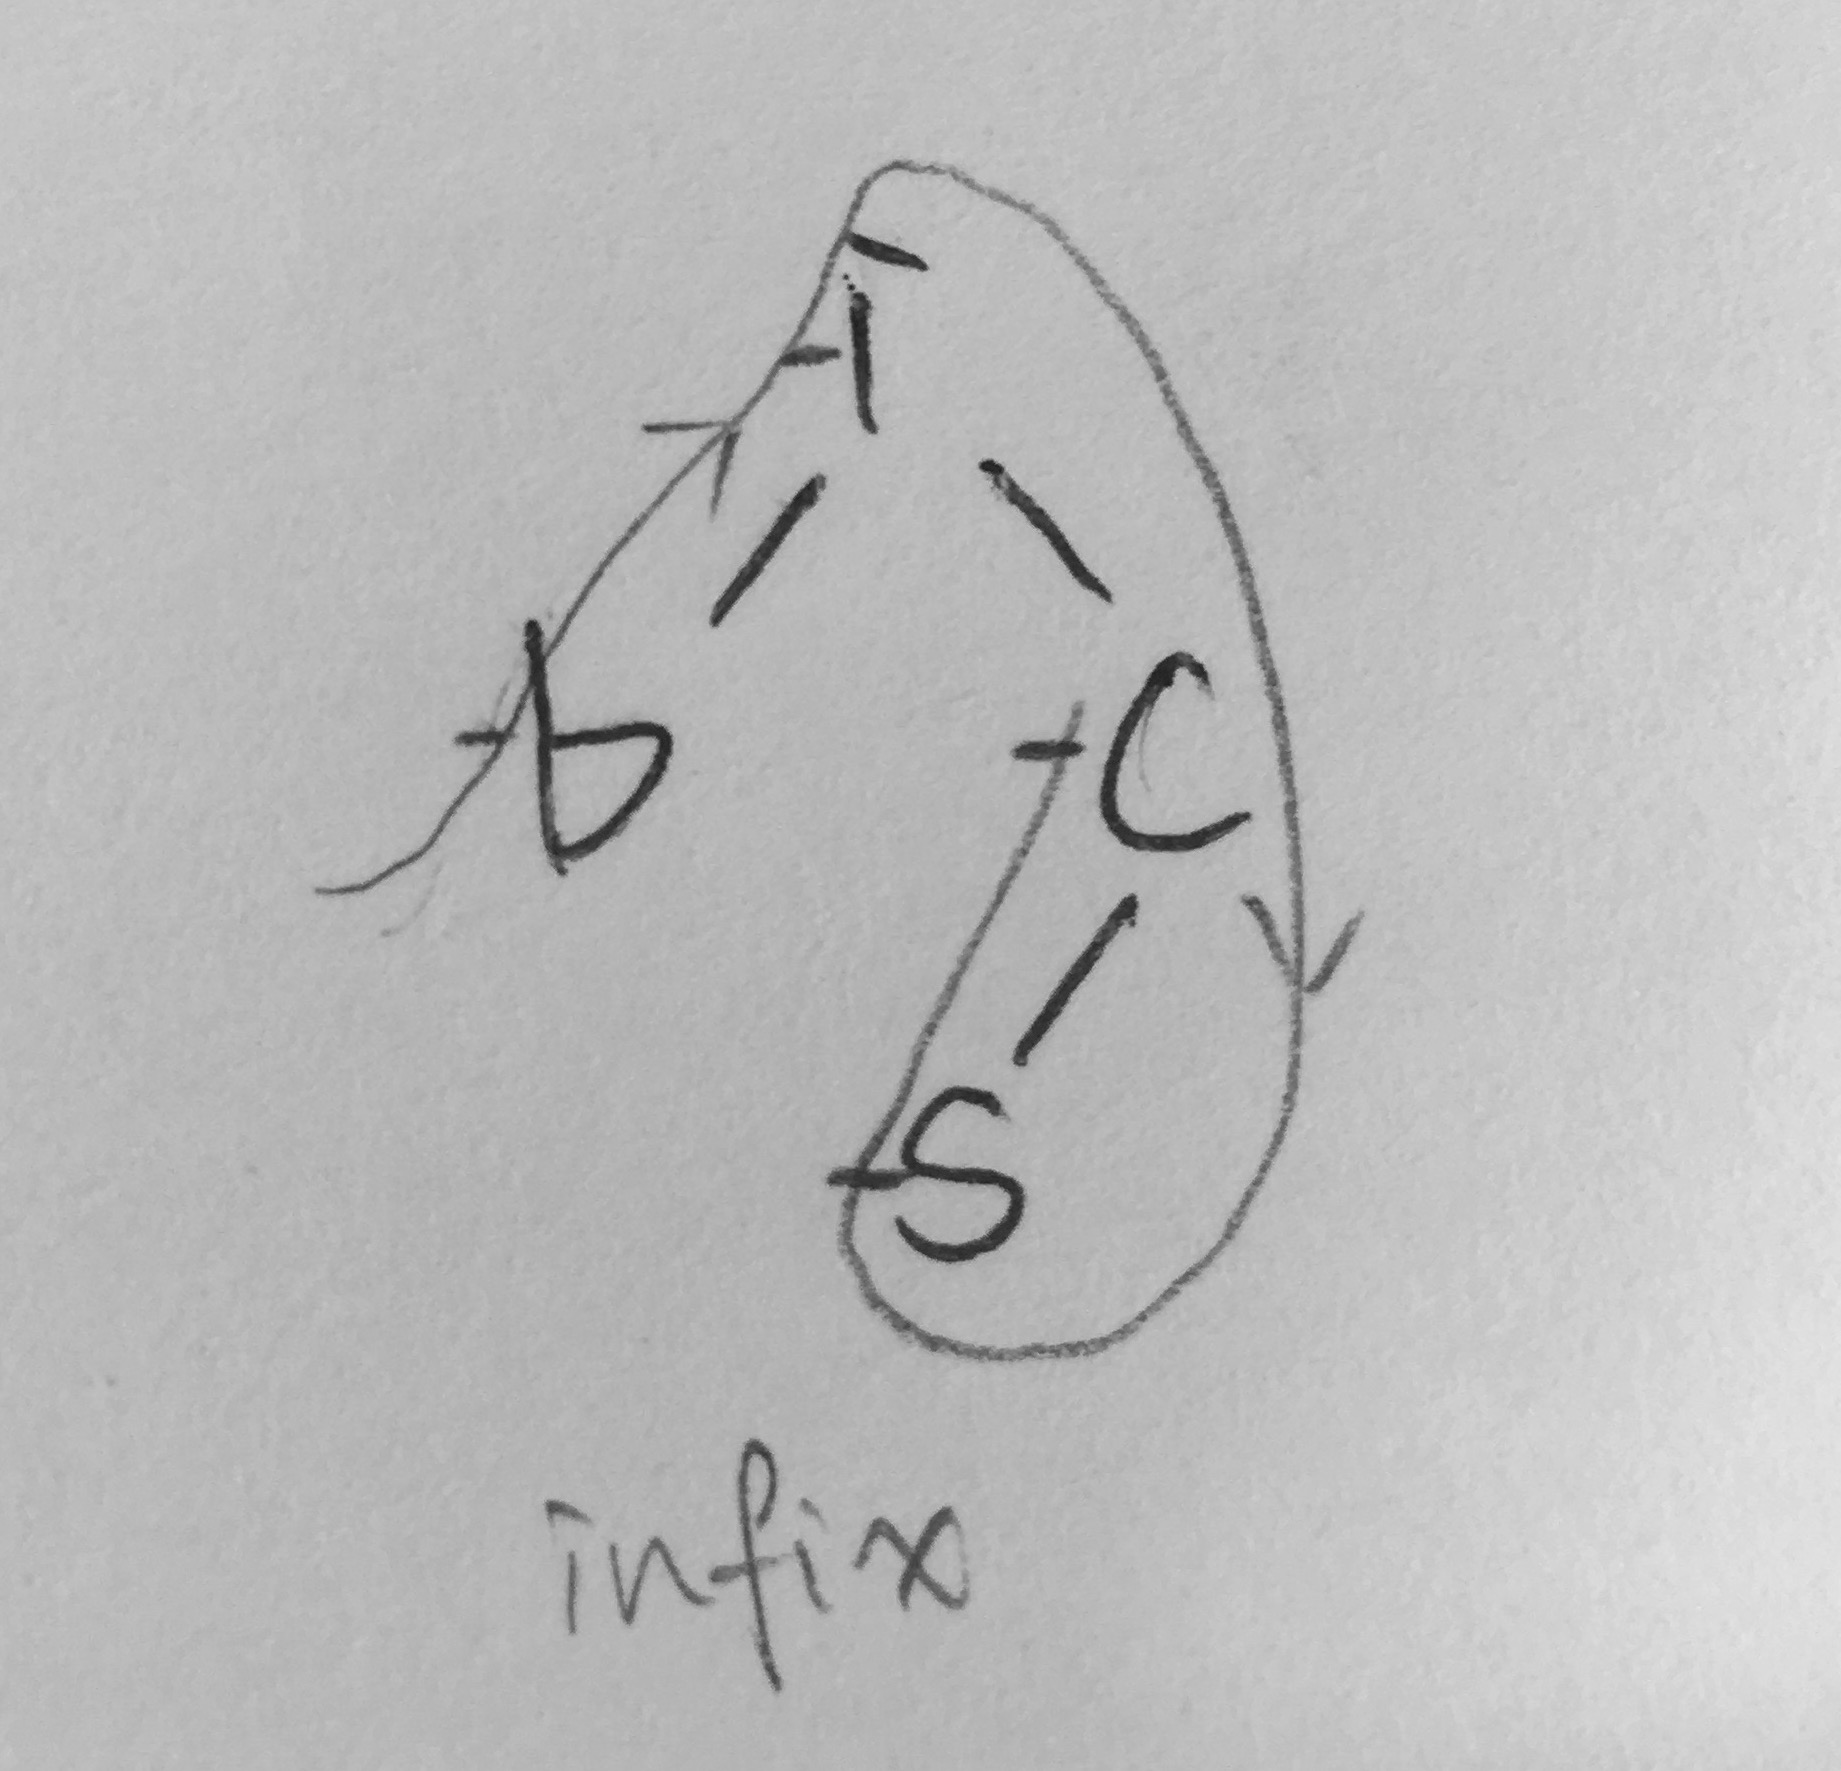 i
b C
S
infix